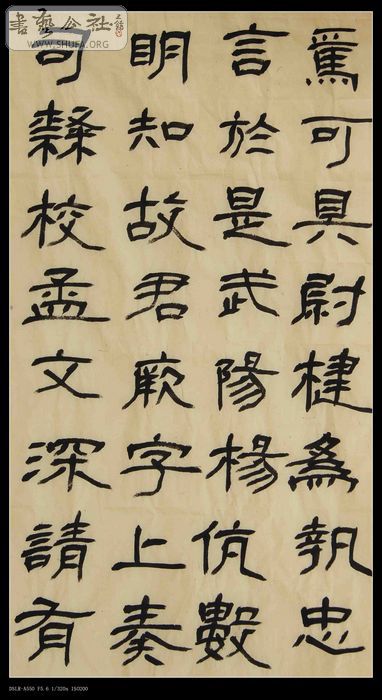 焉可具尉楗為執忠
言於是武陽楊伉數
明知故君厥字上奏
司隸校孟文深請有
書藝公社
WWW.SHUFA.ORG
DSLR-A550 F5.6 1/320s ISO200